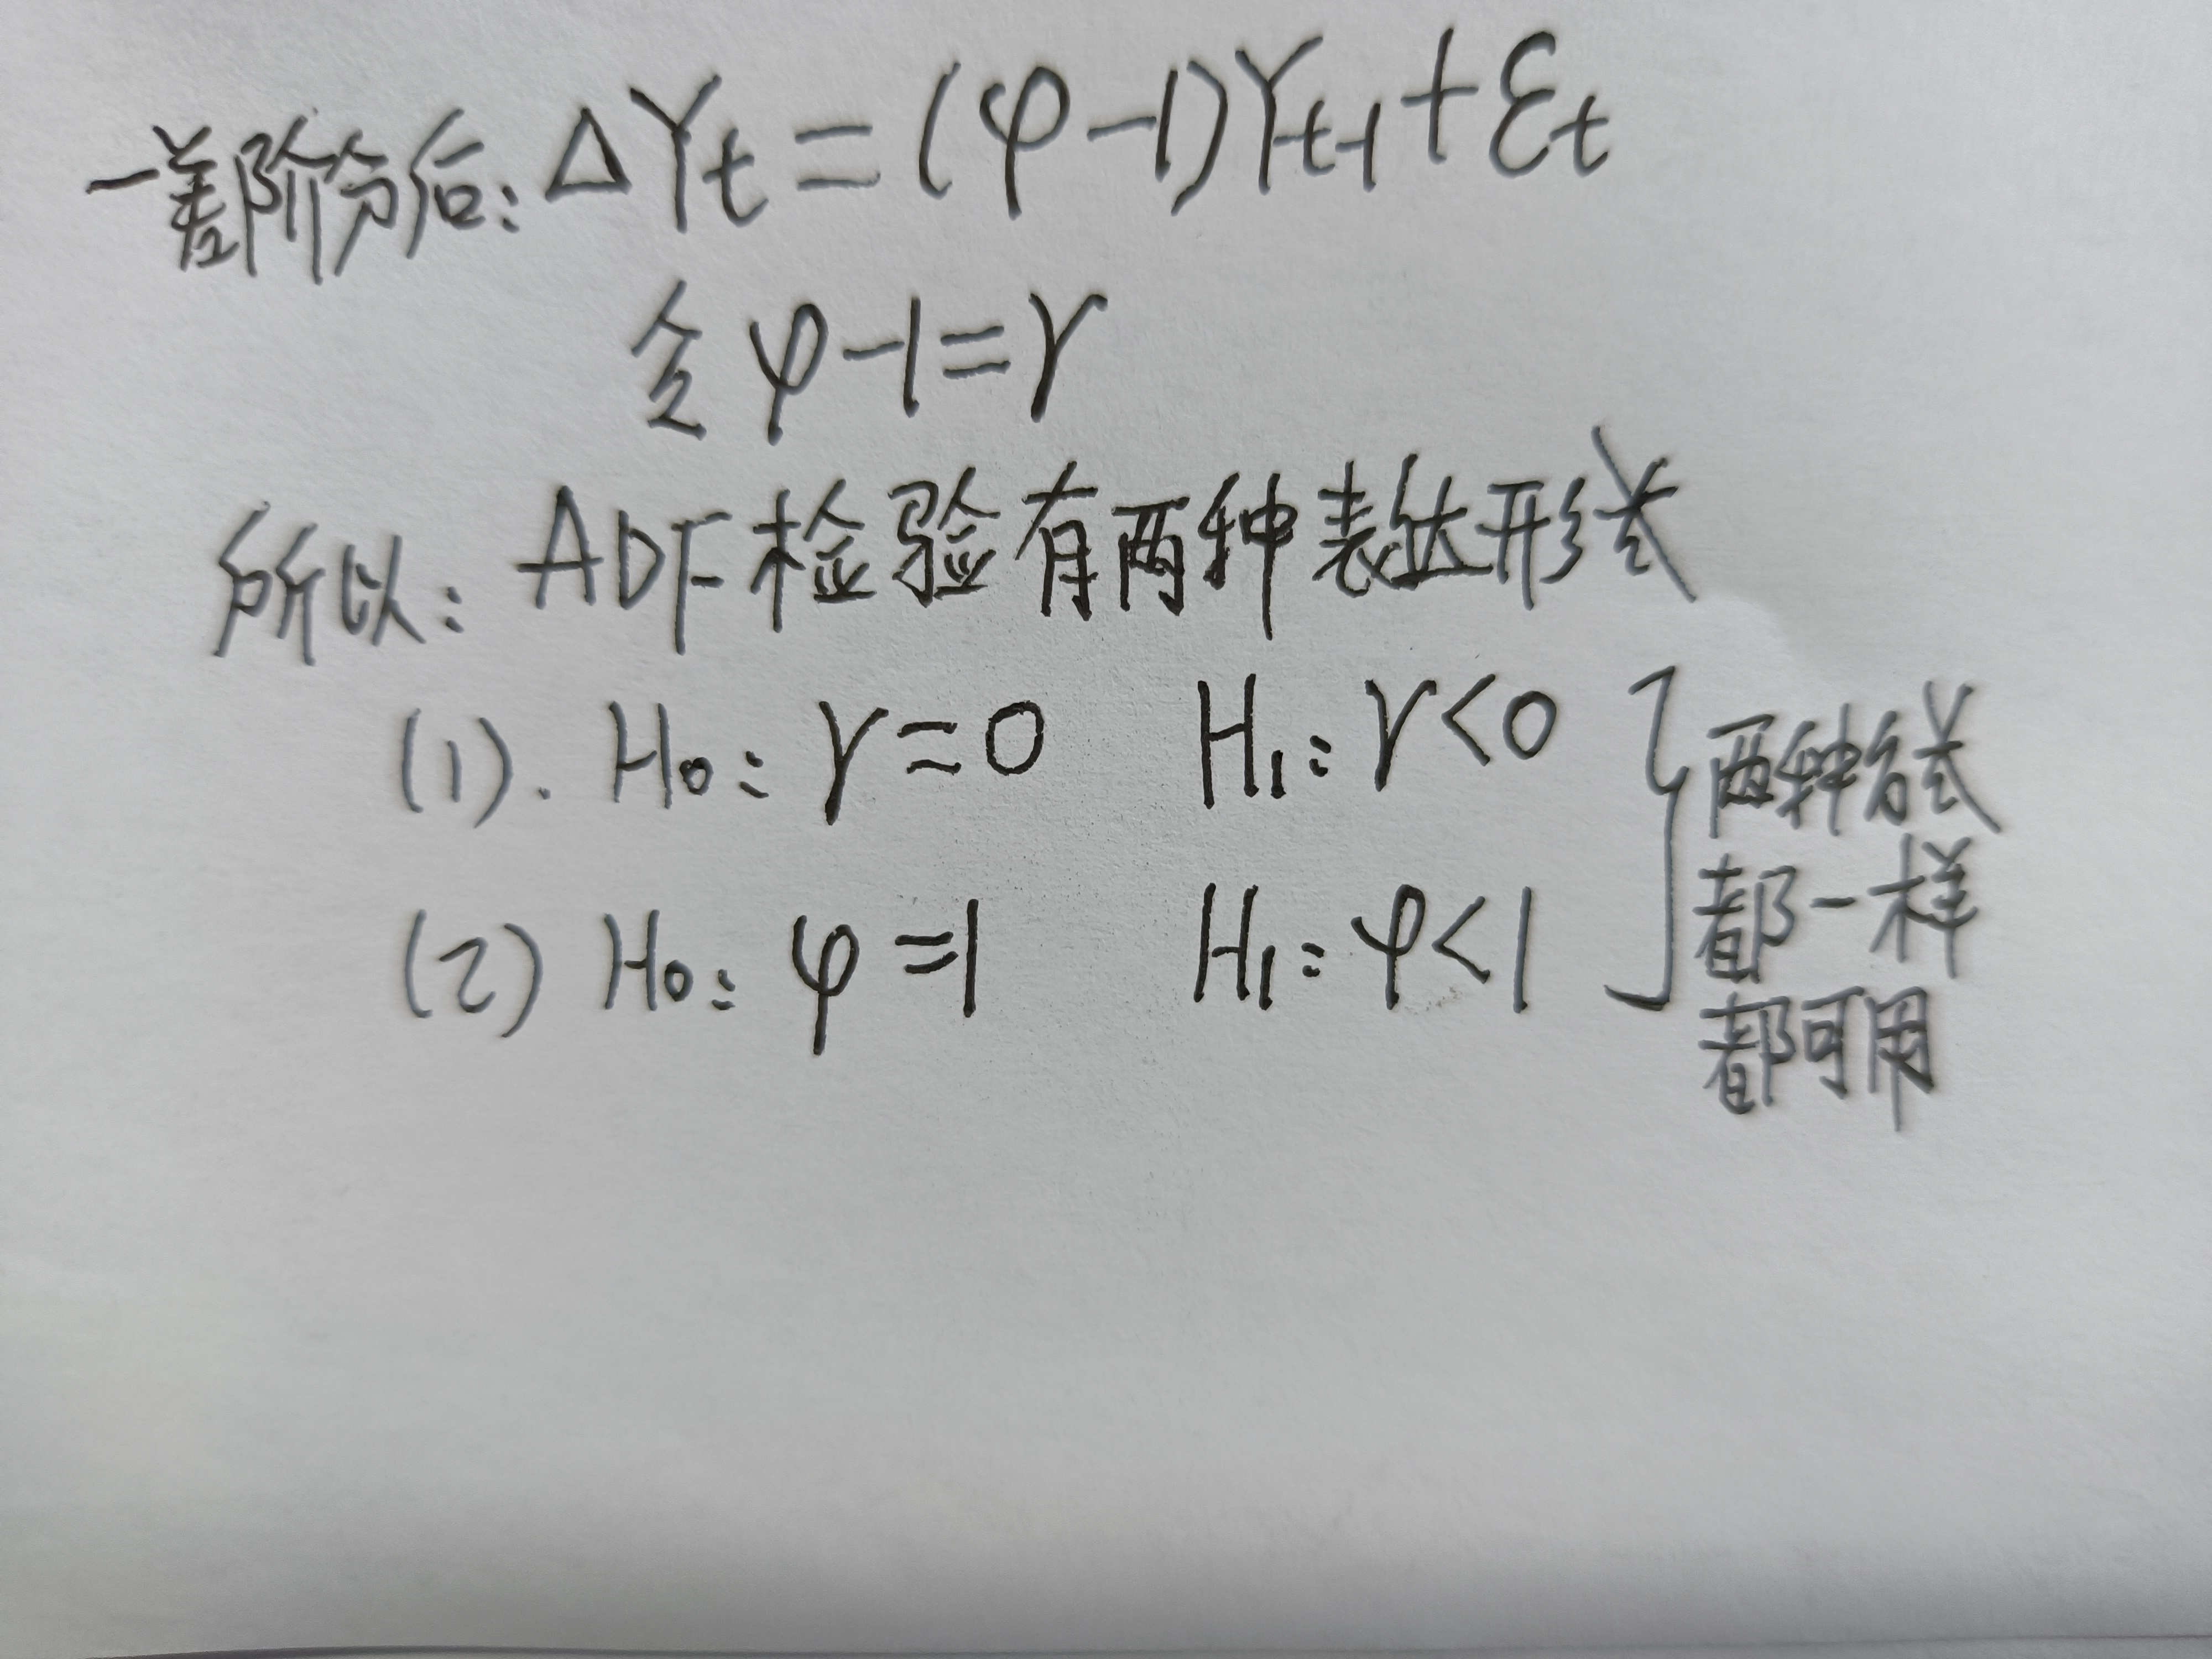 一差阶分后: ΔYt = (φ-1)Yt-1 + εt
令 φ-1=γ
所以: ADF检验有两种表达形式
(1). H0: γ=0 H1: γ<0
(2) H0: φ=1 H1: φ<1
两种方式
都一样
都可用